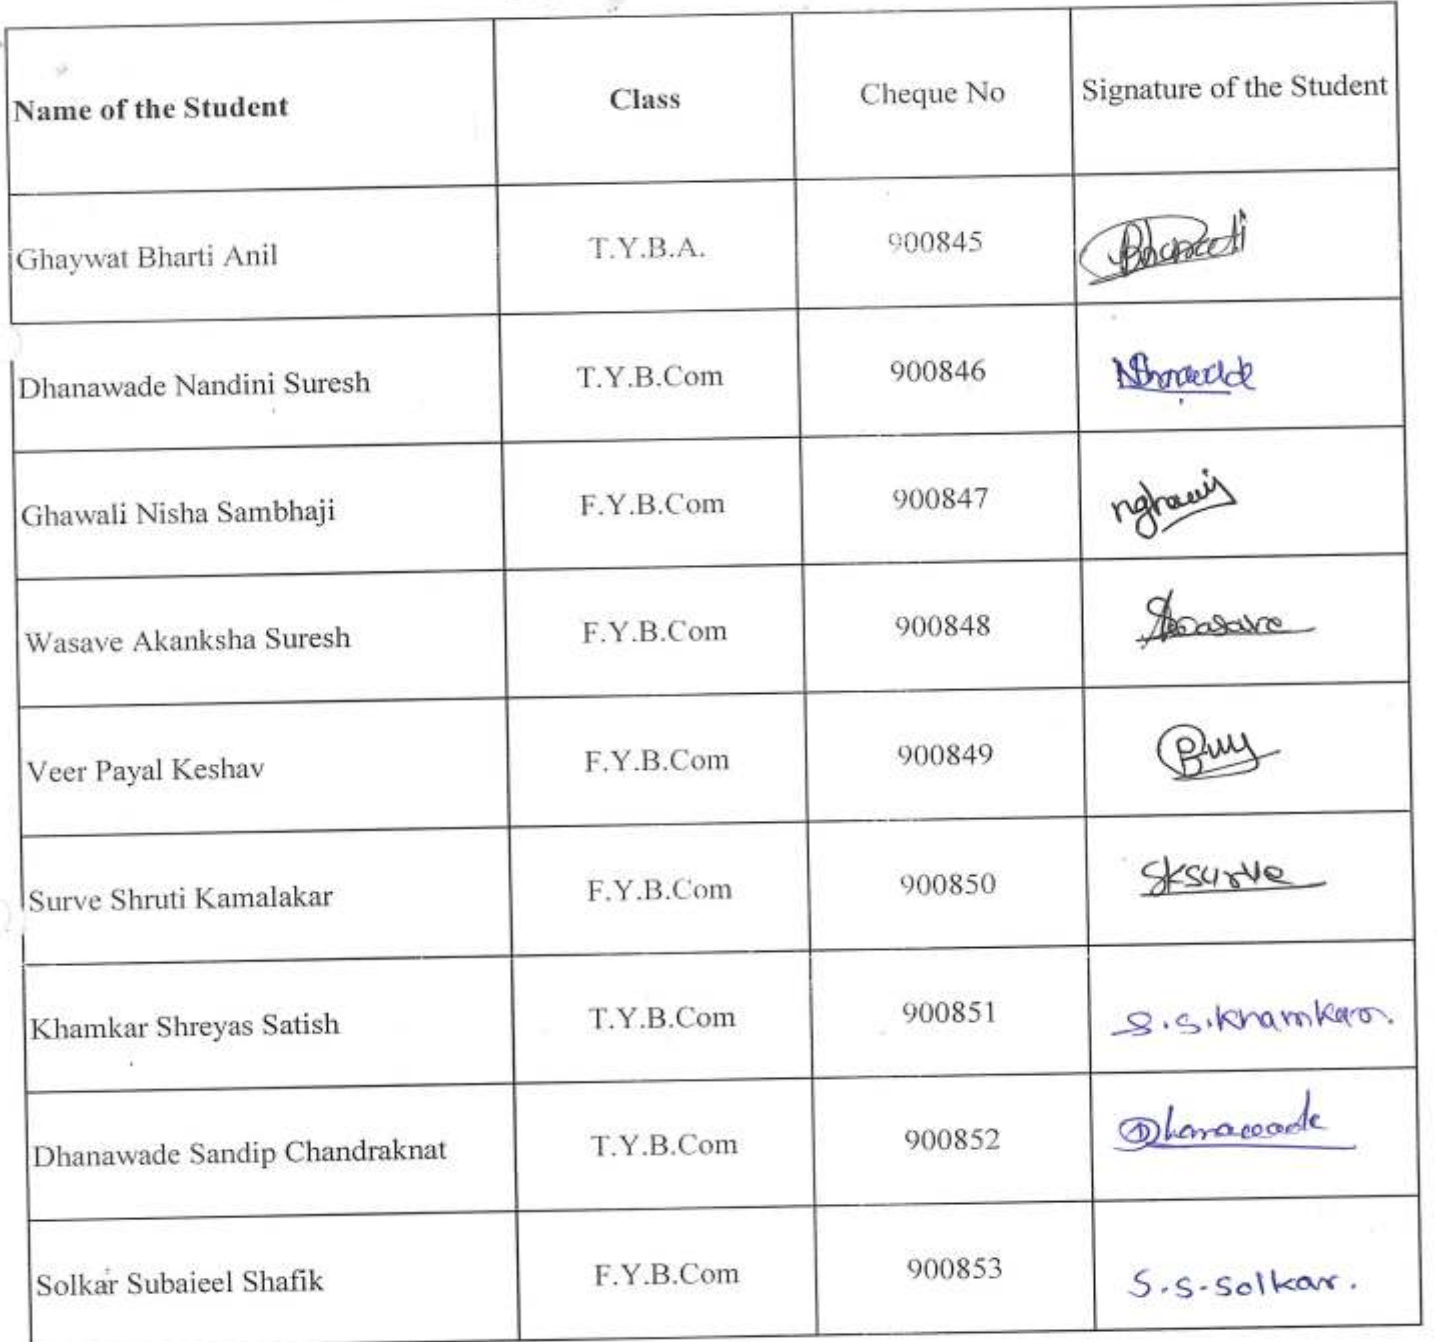 Name of the Student Class Cheque No Signature of the Student
Ghaywat Bharti Anil T.Y.B.A. 900845 Bharati
Dhanawade Nandini Suresh T.Y.B.Com 900846
Ghawali Nisha Sambhaji F.Y.B.Com 900847
Wasave Akanksha Suresh F.Y.B.Com 900848
Veer Payal Keshav F.Y.B.Com 900849
Surve Shruti Kamalakar F.Y.B.Com 900850 SKSurve
Khamkar Shreyas Satish T.Y.B.Com 900851 S.S.Khamkar.
Dhanawade Sandip Chandraknat T.Y.B.Com 900852 Dhanawade
Solkar Subaieel Shafik F.Y.B.Com 900853 S.S.Solkar.